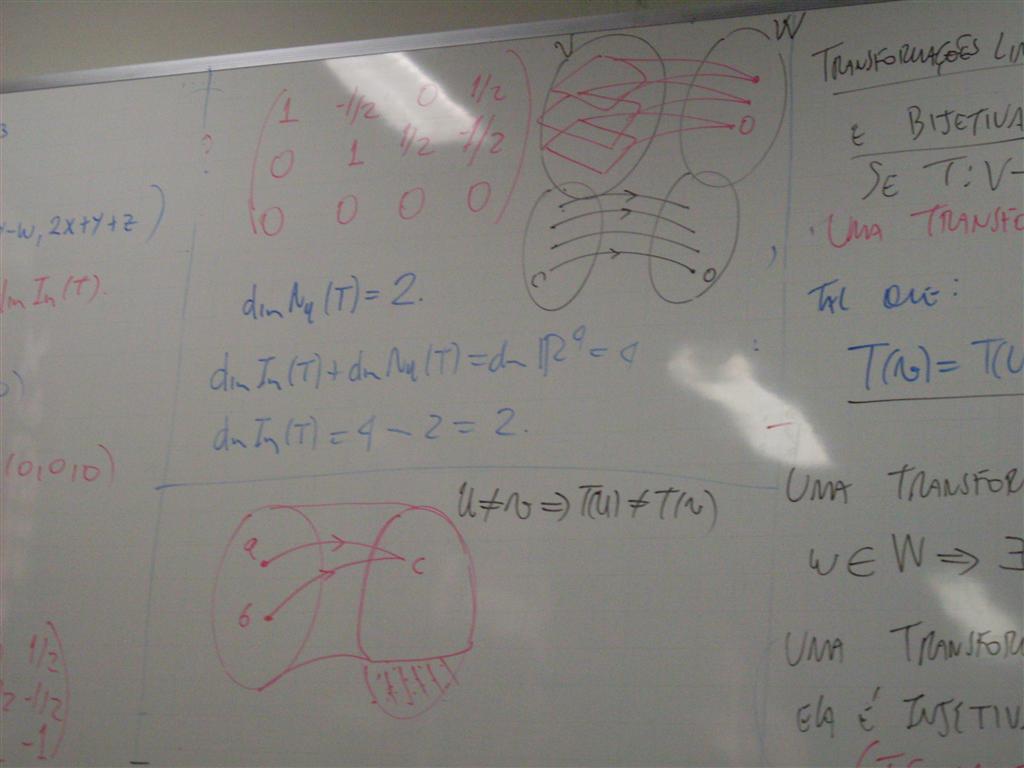 3
-w, 2x+y+z)
Im(T).
)
(0,0,0)
1/2
1/2 -1/2
-1
?
1 -1/2 0 1/2
0 1 1/2 -1/2
0 0 0 0
dim Nu(T) = 2.
dim Im(T) + dim Nu(T) = dim R^4 = 4
dim Im(T) = 4 - 2 = 2.
V W
0
0 0
u ≠ v ⇒ T(u) ≠ T(v)
a
b
c
TRANSFORMAÇÕES LIN
E BIJETIVA
SE T: V-
UMA TRANSFO
TAL QUE:
T(v) = T(u
UMA TRANSFOR
w ∈ W ⇒ ∃
UMA TRANSFOR
ELA É INJETIV